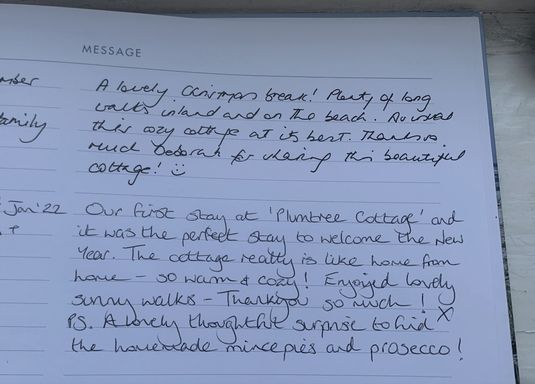 MESSAGE
mber
A lovely Christmas break! Plenty of long
walks inland and on the beach. As usual
amily
this cozy cottage at its best. Thanks so
much Deborah for sharing this beautiful
cottage! :)
Jan '22
Our first stay at 'Plumtree Cottage' and
it was the perfect stay to welcome the New
Year. The cottage really is like home from
home - so warm & cozy! Enjoyed lovely
sunny walks - Thankyou so much! X
PS. A lovely thoughtful surprise to find
the homemade mincepies and prosecco!